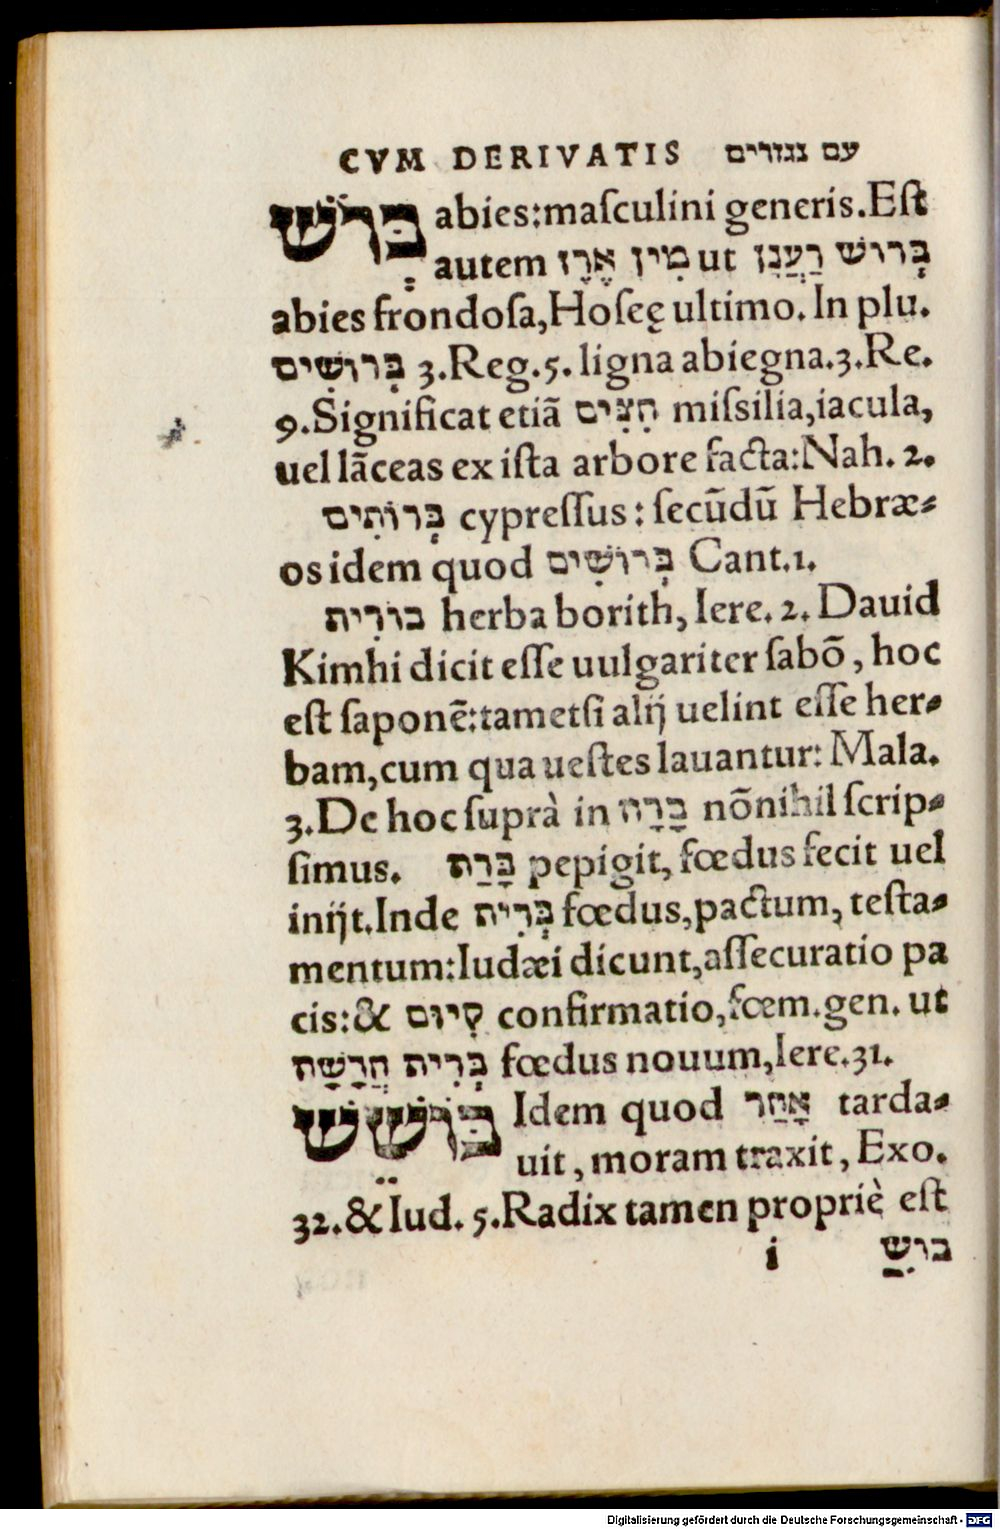 CVM DERIVATIS עם נגזרים
בְּרֹשׁ abies:maſculini generis.Eſt
autem מִין אֶרֶז ut בְּרוֹשׁ רַעֲנָן
abies frondoſa,Hoſeę ultimo.In plu.
בְּרוֹשִׁים 3.Reg.5.ligna abiegna.3.Re.
9.Significat etiã חִצִּים miſsilia,iacula,
uel lãceas ex iſta arbore facta:Nah.2.
בְּרוֹתִים cypreſſus:ſecũdũ Hebræ⸗
os idem quod בְּרוֹשִׁים Cant.1.
בורִית herba borith,Iere.2.Dauid
Kimhi dicit eſſe uulgariter ſabõ,hoc
eſt ſaponẽ:tametſi alij uelint eſſe her⸗
bam,cum qua ueſtes lauantur:Mala.
3.De hoc ſuprà in בָּרָה nõnihil ſcrip⸗
ſimus. בָּרַת pepigit,fœdus fecit uel
inijt.Inde בְּרִית fœdus,pactum,teſta⸗
mentum:Iudæi dicunt,aſſecuratio pa
cis:& קִיוּם confirmatio,fœm.gen.ut
בְּרִית חֲדָשָׁה fœdus nouum,Iere.31.
בֹּשֵׁשׁ Idem quod אָחַר tarda⸗
uit,moram traxit,Exo.
32.& Iud.5.Radix tamen propriè eſt
i בּוּשׁ
Digitalisierung gefördert durch die Deutsche Forschungsgemeinschaft - DFG